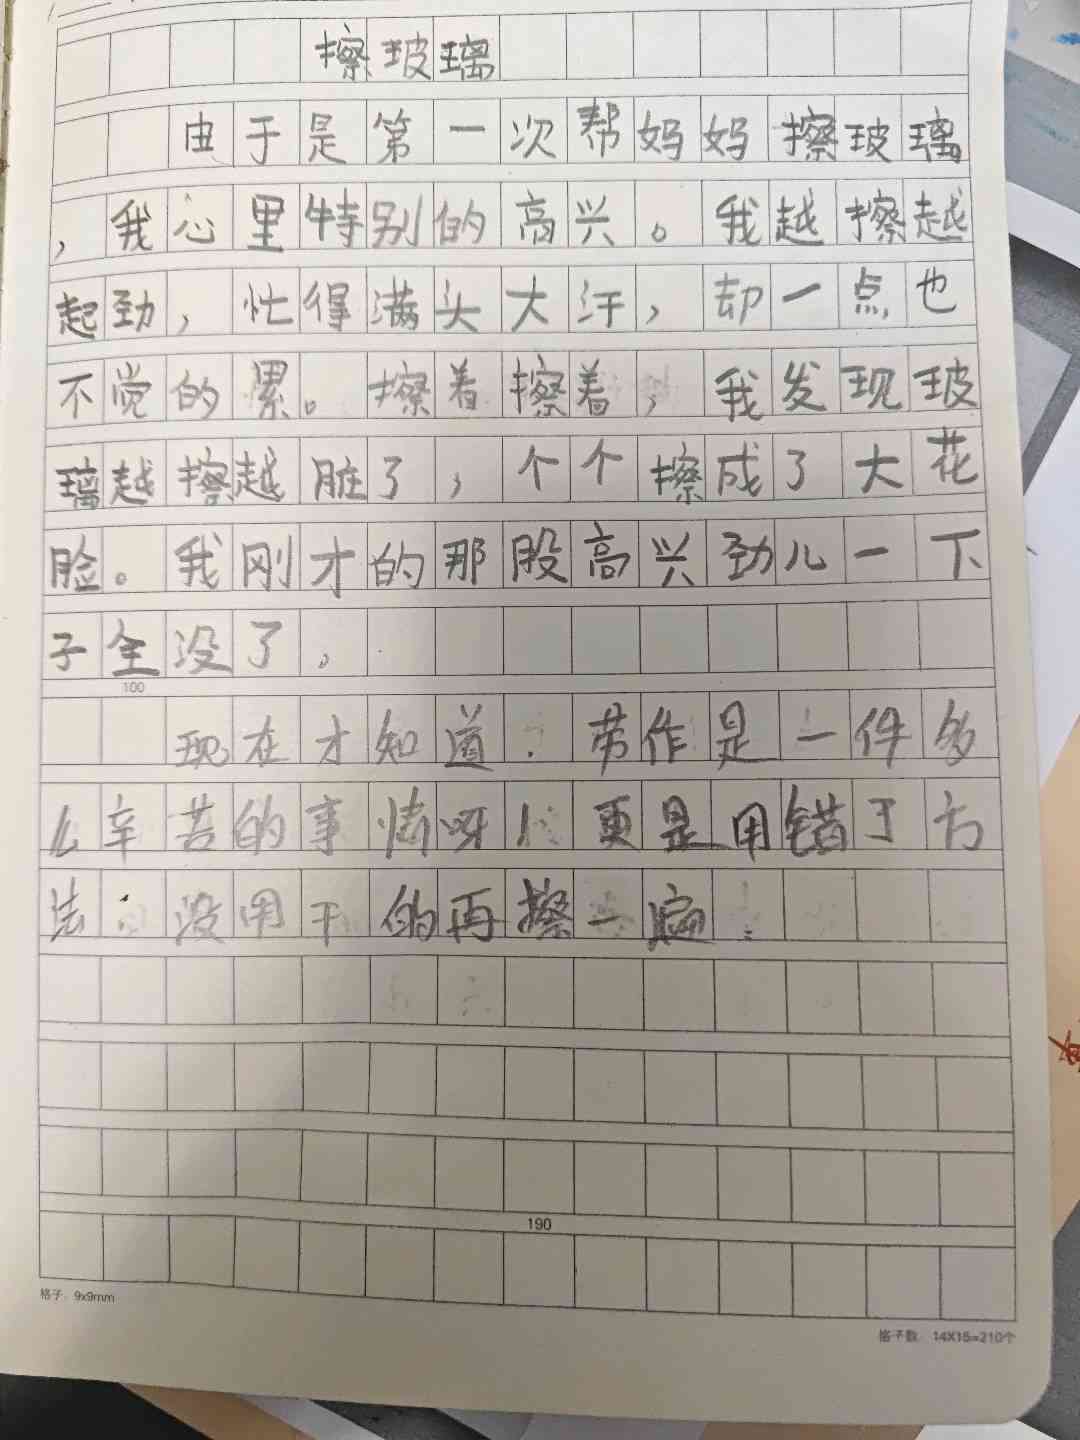 擦玻璃
由于是第一次帮妈妈擦玻璃
，我心里特别的高兴。我越擦越
起劲，忙得满头大汗，却一点也
不觉的累。擦着擦着，我发现玻
璃越擦越脏了，个个擦成了大花
脸。我刚才的那股高兴劲儿一下
子全没了，
100
现在才知道．劳作是一件多
么辛苦的事情呀！更是用错了方
法：没用干的再擦一遍．
190
格子：9x9mm
格子数：14X15=210个